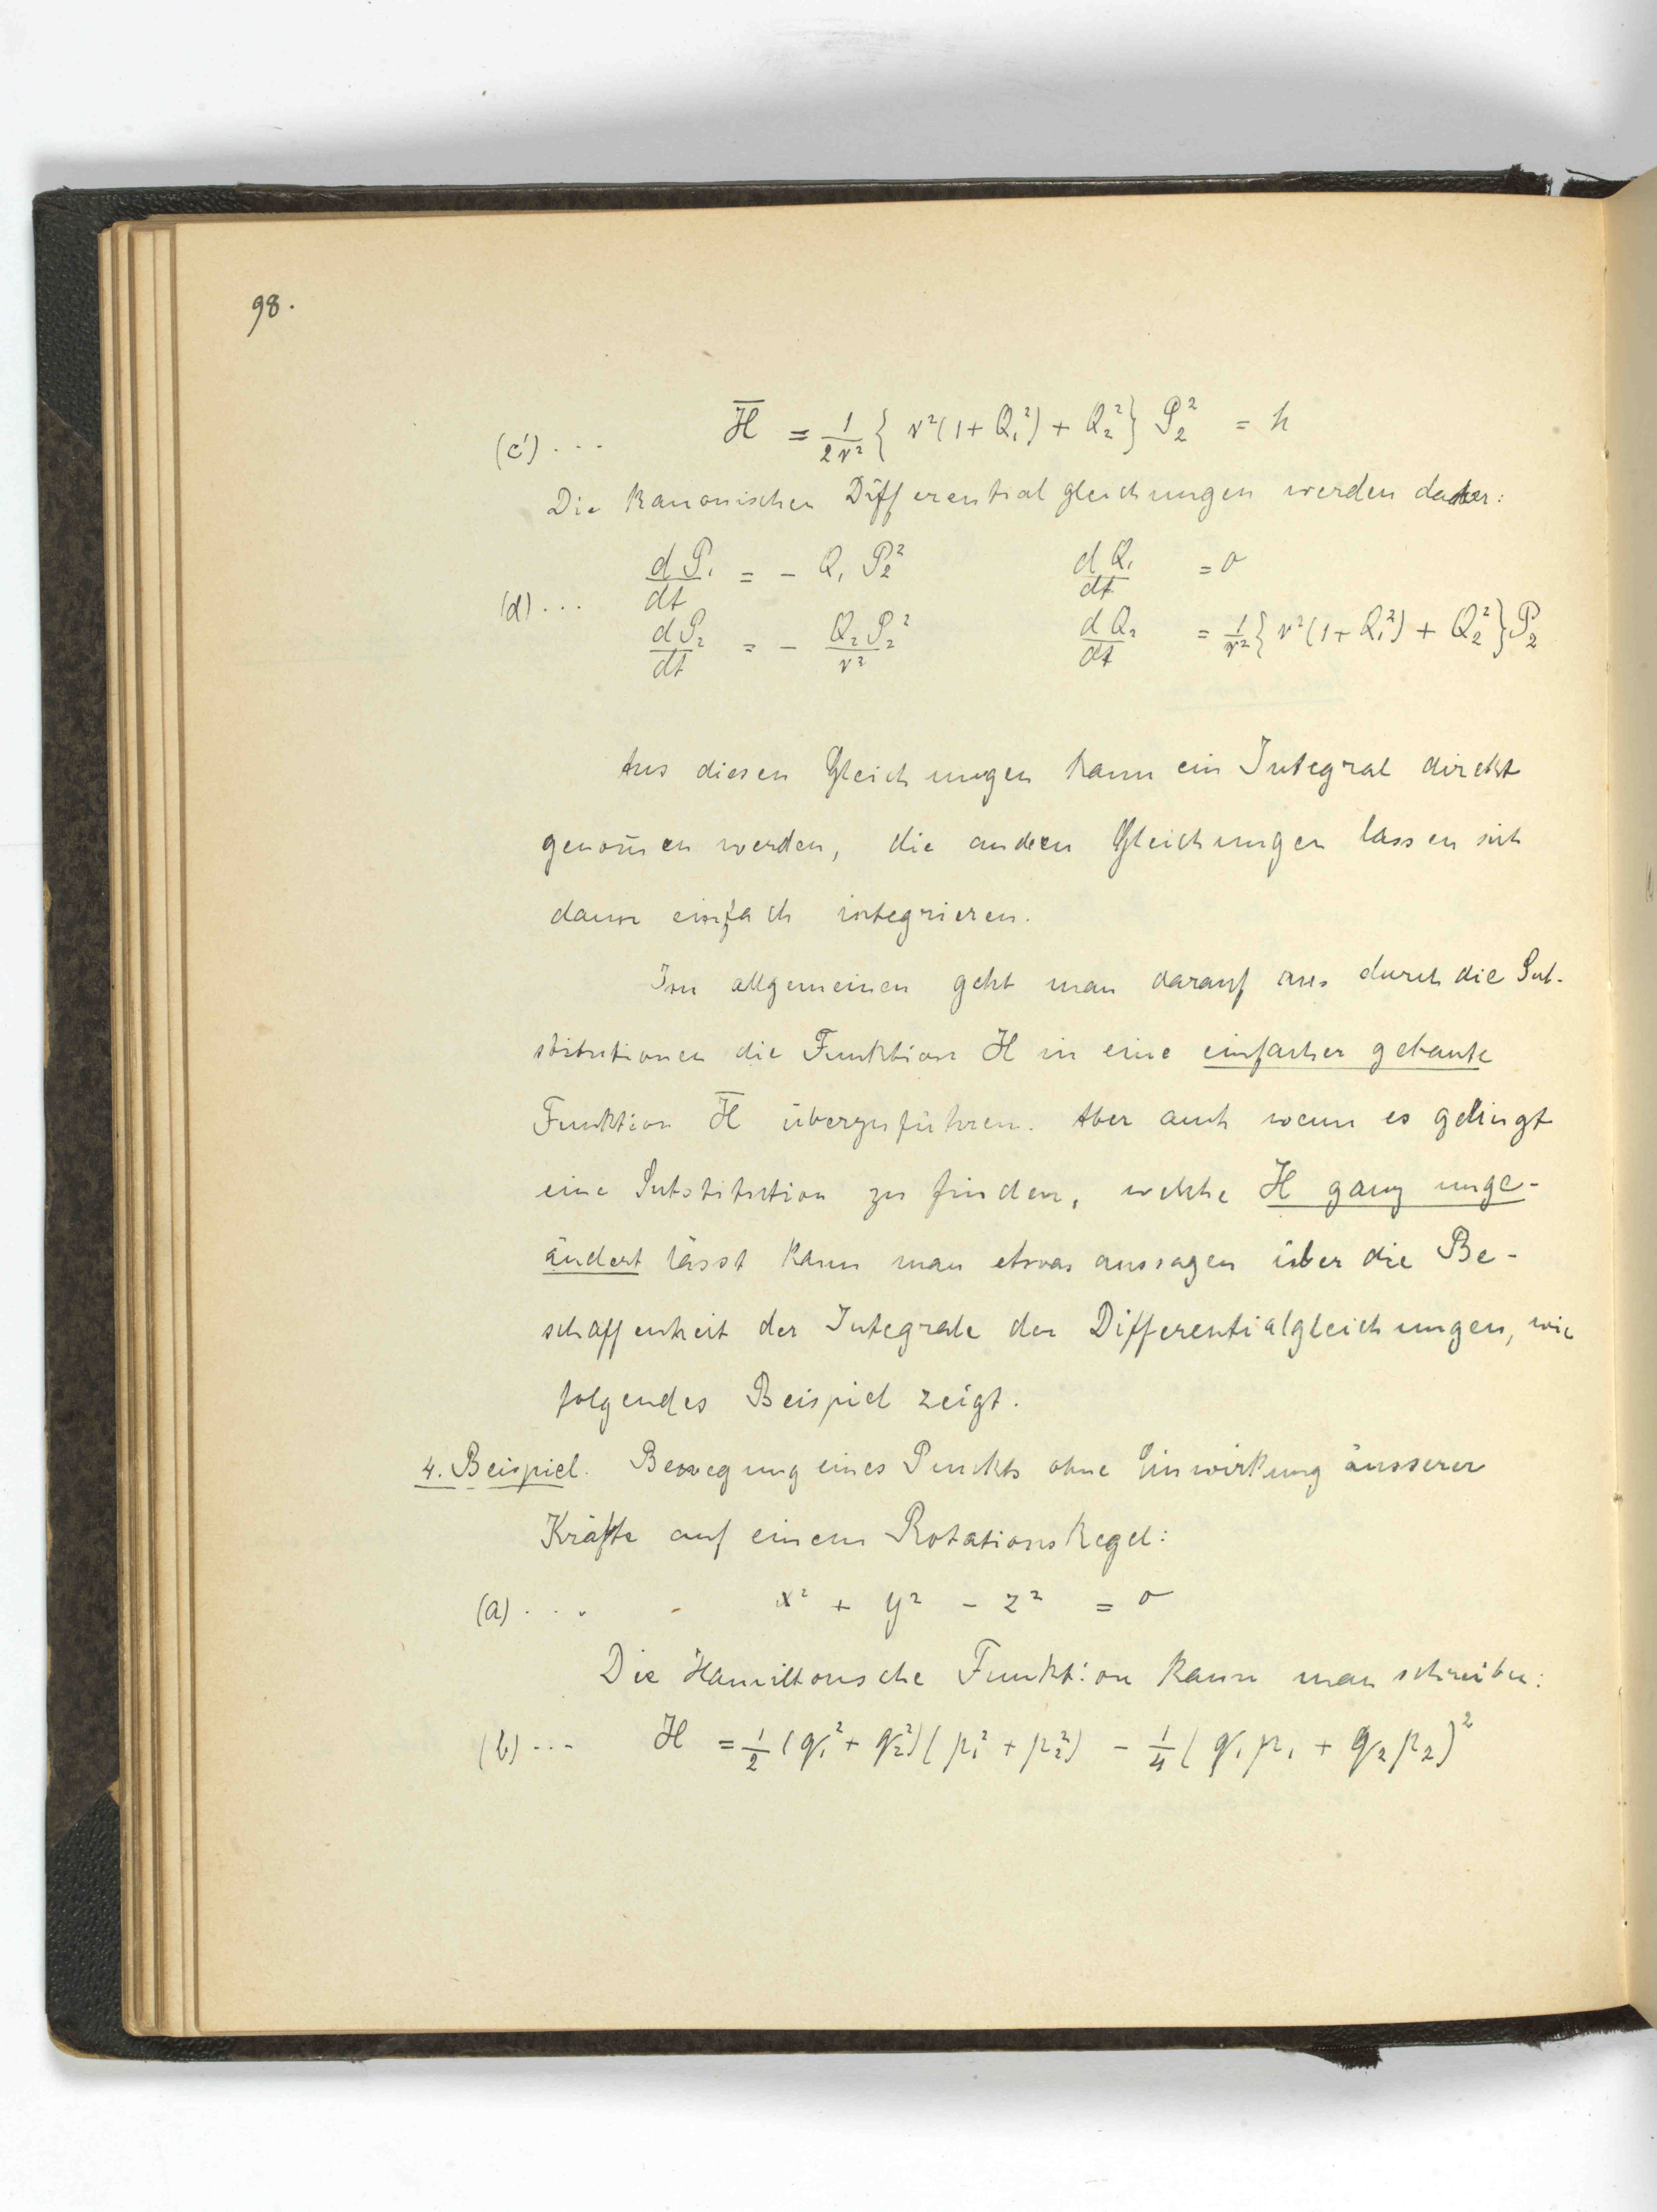 98.
(c') ... H̅ = 1/2r² { r²(1+Q₁²) + Q₂² } P₂² = h
Die kanonischen Differentialgleichungen werden daher:
(d) ... dP₁/dt = - Q₁ P₂² dQ₁/dt = 0
dP₂/dt = - Q₂P₂²/r² dQ₂/dt = 1/r² { r²(1+Q₁²) + Q₂² } P₂
Aus diesen Gleichungen kann ein Integral direkt
genom̅en werden, die andern Gleichungen lassen sich
dann einfach integrieren.
Im allgemeinen geht man darauf aus durch die Sub-
stitutionen die Funktion H in eine einfacher gebaute
Funktion H̅ überzuführen. Aber auch wenn es gelingt
eine Substitution zu finden, welche H ganz unge-
ändert lässt kann man etwas aussagen über die Be-
schaffenheit der Integrale der Differentialgleichungen, wie
folgendes Beispiel zeigt.
4. Beispiel. Bewegung eines Punkts ohne Einwirkung äusserer
Kräfte auf einem Rotationskegel:
(a) ... x² + y² - z² = 0
Die Hamiltonsche Funktion kann man schreiben:
(b) ... H = 1/2 (q₁² + q₂²)(p₁² + p₂²) - 1/4 (q₁p₁ + q₂p₂)²